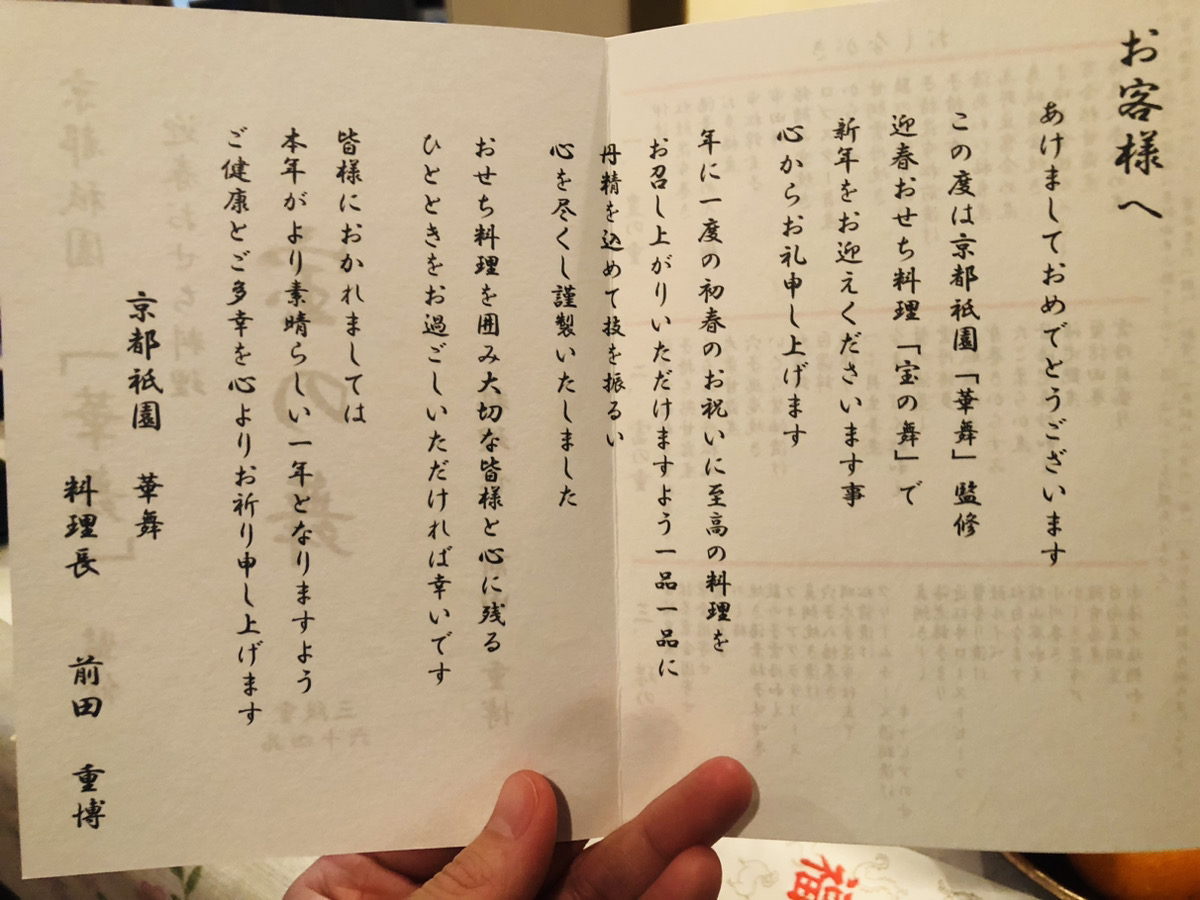 お客様へ
あけましておめでとうございます
この度は京都祇園「華舞」監修
迎春おせち料理「宝の舞」で
新年をお迎えくださいます事
心からお礼申し上げます
年に一度の初春のお祝いに至高の料理を
お召し上がりいただけますよう一品一品に
丹精を込めて技を振るい
心を尽くし謹製いたしました
おせち料理を囲み大切な皆様と心に残る
ひとときをお過ごしいただければ幸いです
皆様におかれましては
本年がより素晴らしい一年となりますよう
ご健康とご多幸を心よりお祈り申し上げます
京都祇園 華舞
料理長 前田 重博
福